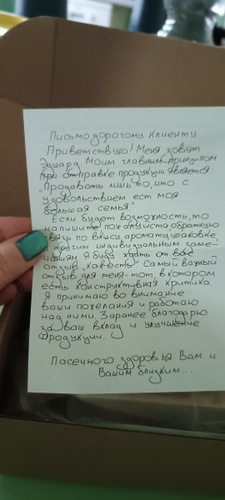 Письмо дорогому клиенту
Приветствую! Меня зовут
Эдуард. Моим главным принципом
при отправке продукции является
"Продавать лишь то, что с
удовольствием ест моя
большая семья"
Если будет возможность, то
напишите пож отзыв обратную
связь по вкусу аромату, упаковке
другим индивидуальным заме-
чаниям Я буду ждать от вас
отзыв „как есть" Самый важный
отзыв для меня-тот, в котором
есть конструктивная критика.
Я принимаю во внимание
ваши пожелания и работаю
над ними. Заранее благодарю
за ваш вклад и улучшение
продукции.
Пасечного здоровья Вам и
Вашим близким...